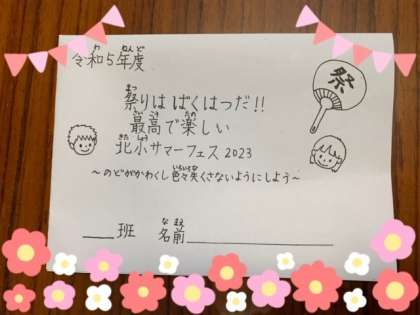 令和5年度
祭りは ばくはつだ!!
最高で楽しい
北小サマーフェス 2023
～のどがかわくし色々臭くさないようにしよう～
班 名前
祭